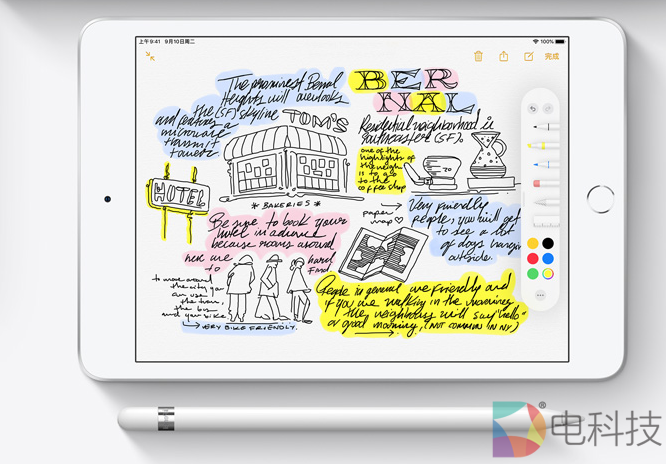 上午9:41 9月10日周二
100%
完成
The prominent Bernal
Heights hill overlooks
the (SF) skyline
and features a
microwave
transmit
tower
BER
NAL
TOM'S
Residential neighborhood is
southeastern (SF).
one of the
highlights of
the neigh
is to go
to the
coffee shop
HOTEL
* BAKERIES *
paper
map
Very friendly
people, you will get
to see a lot
of dogs hanging
outside.
Be sure to book your
hotel in advance
because rooms around
here are hard
to find.
to move around
the city you
can use
the train,
the bus
and your bike
VERY BIKE FRIENDLY.
People in general are friendly and
if you are walking in the mornings
the neighbors will say "hello"
or good morning, (NOT COMMON IN NY)
电科技
®